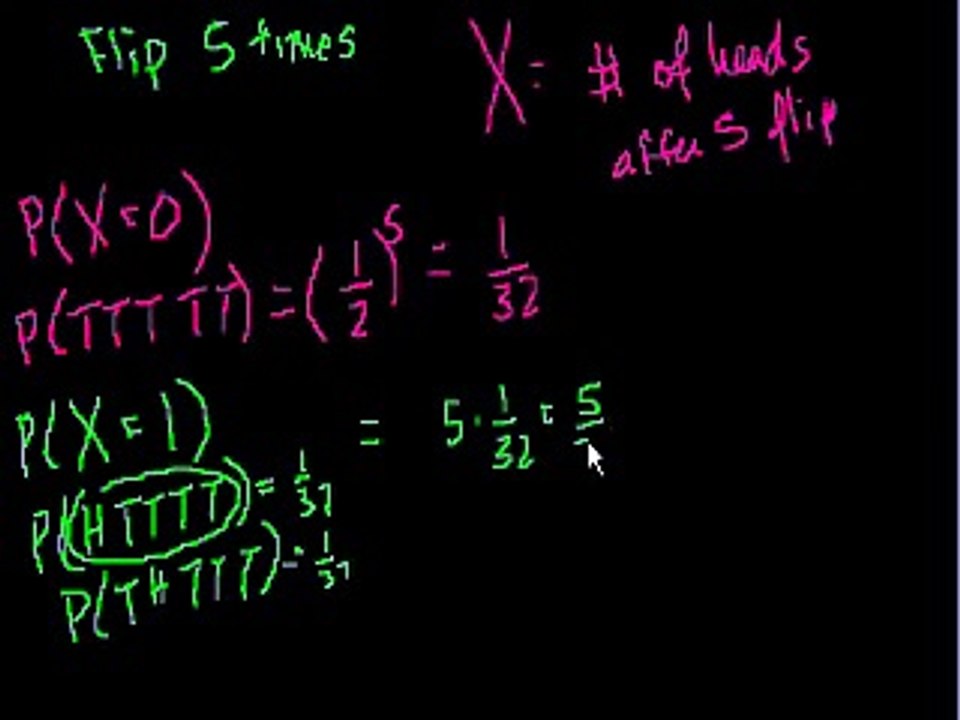 Flip 5 times
X = # of heads
after 5 flip
P(X=0)
P(TTTTT) = (1/2)^5 = 1/32
P(X=1) = 5·1/32 = 5/
P(HTTTT) = 1/32
P(THTTT) = 1/32